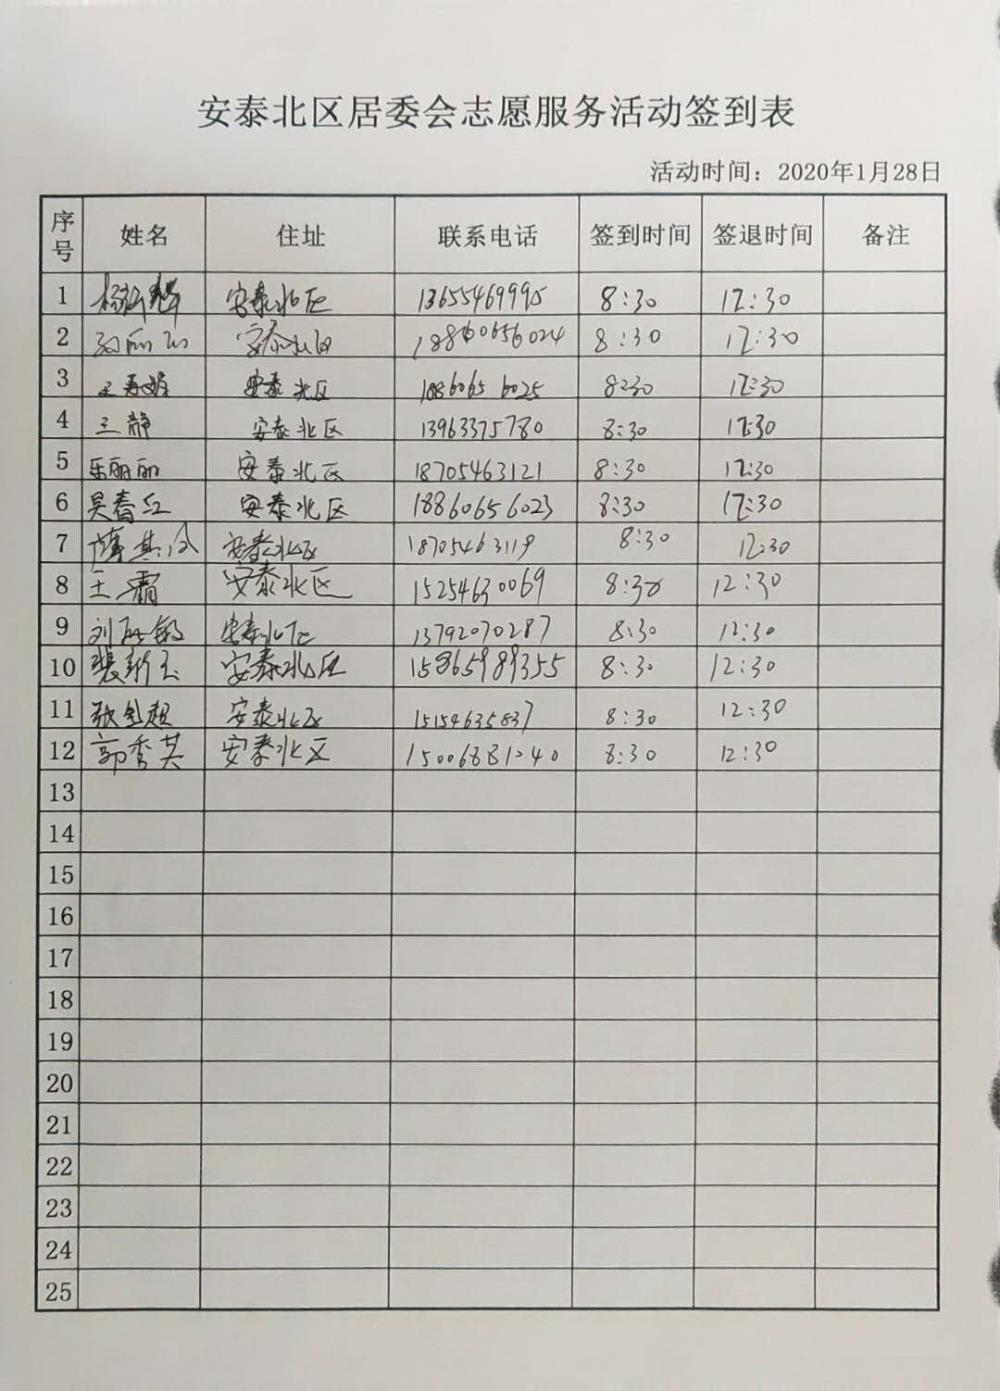 安泰北区居委会志愿服务活动签到表
活动时间：2020年1月28日
序号 姓名 住址 联系电话 签到时间 签退时间 备注
1 安泰北区 13655469995 8:30 12:30
2 安泰北区 18860656024 8:30 12:30
3 安泰北区 18860656025 8:30 12:30
4 王静 安泰北区 13963375780 8:30 12:30
5 乐丽丽 安泰北区 18705463121 8:30 12:30
6 吴春红 安泰北区 18860656023 8:30 12:30
7 薄其 安泰北区 18705463119 8:30 12:30
8 王霜 安泰北区 15254630069 8:30 12:30
9 刘 敏 安泰北区 13792070287 8:30 12:30
10 裴新玉 安泰北区 15865989355 8:30 12:30
11 张 超 安泰北区 15154635837 8:30 12:30
12 郭秀英 安泰北区 15006881240 8:30 12:30
13
14
15
16
17
18
19
20
21
22
23
24
25